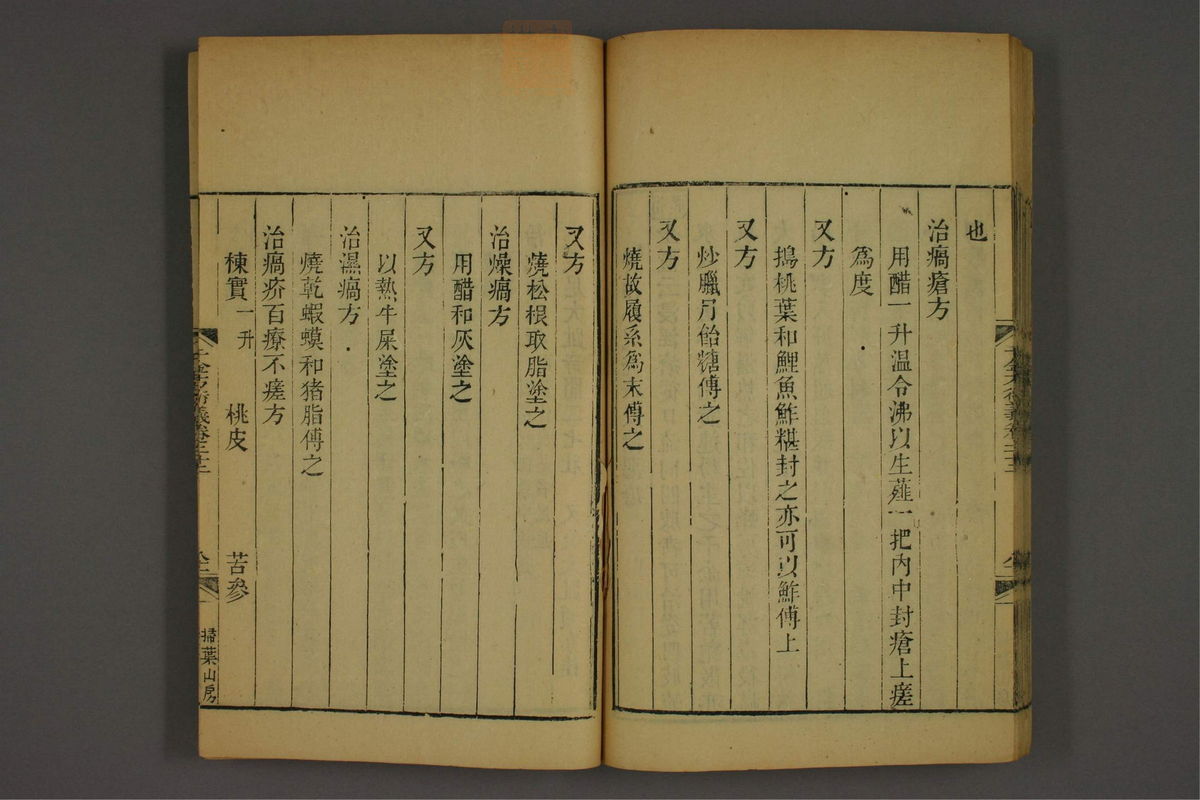 也
治瘑瘡方
用醋一升温令沸以生薤一把內中封瘡上瘥
爲度
又方
搗桃葉和鯉魚鮓糂封之亦可以鮓傅上
又方
炒臘月飴糖傅之
又方
燒故履系爲末傅之
又方
燒松根取脂塗之
治燥瘑方
用醋和灰塗之
又方
以熱牛屎塗之
治濕瘑方
燒乾蝦蟆和猪脂傅之
治瘑疥百療不瘥方
楝實一升 桃皮 苦參
掃葉山房